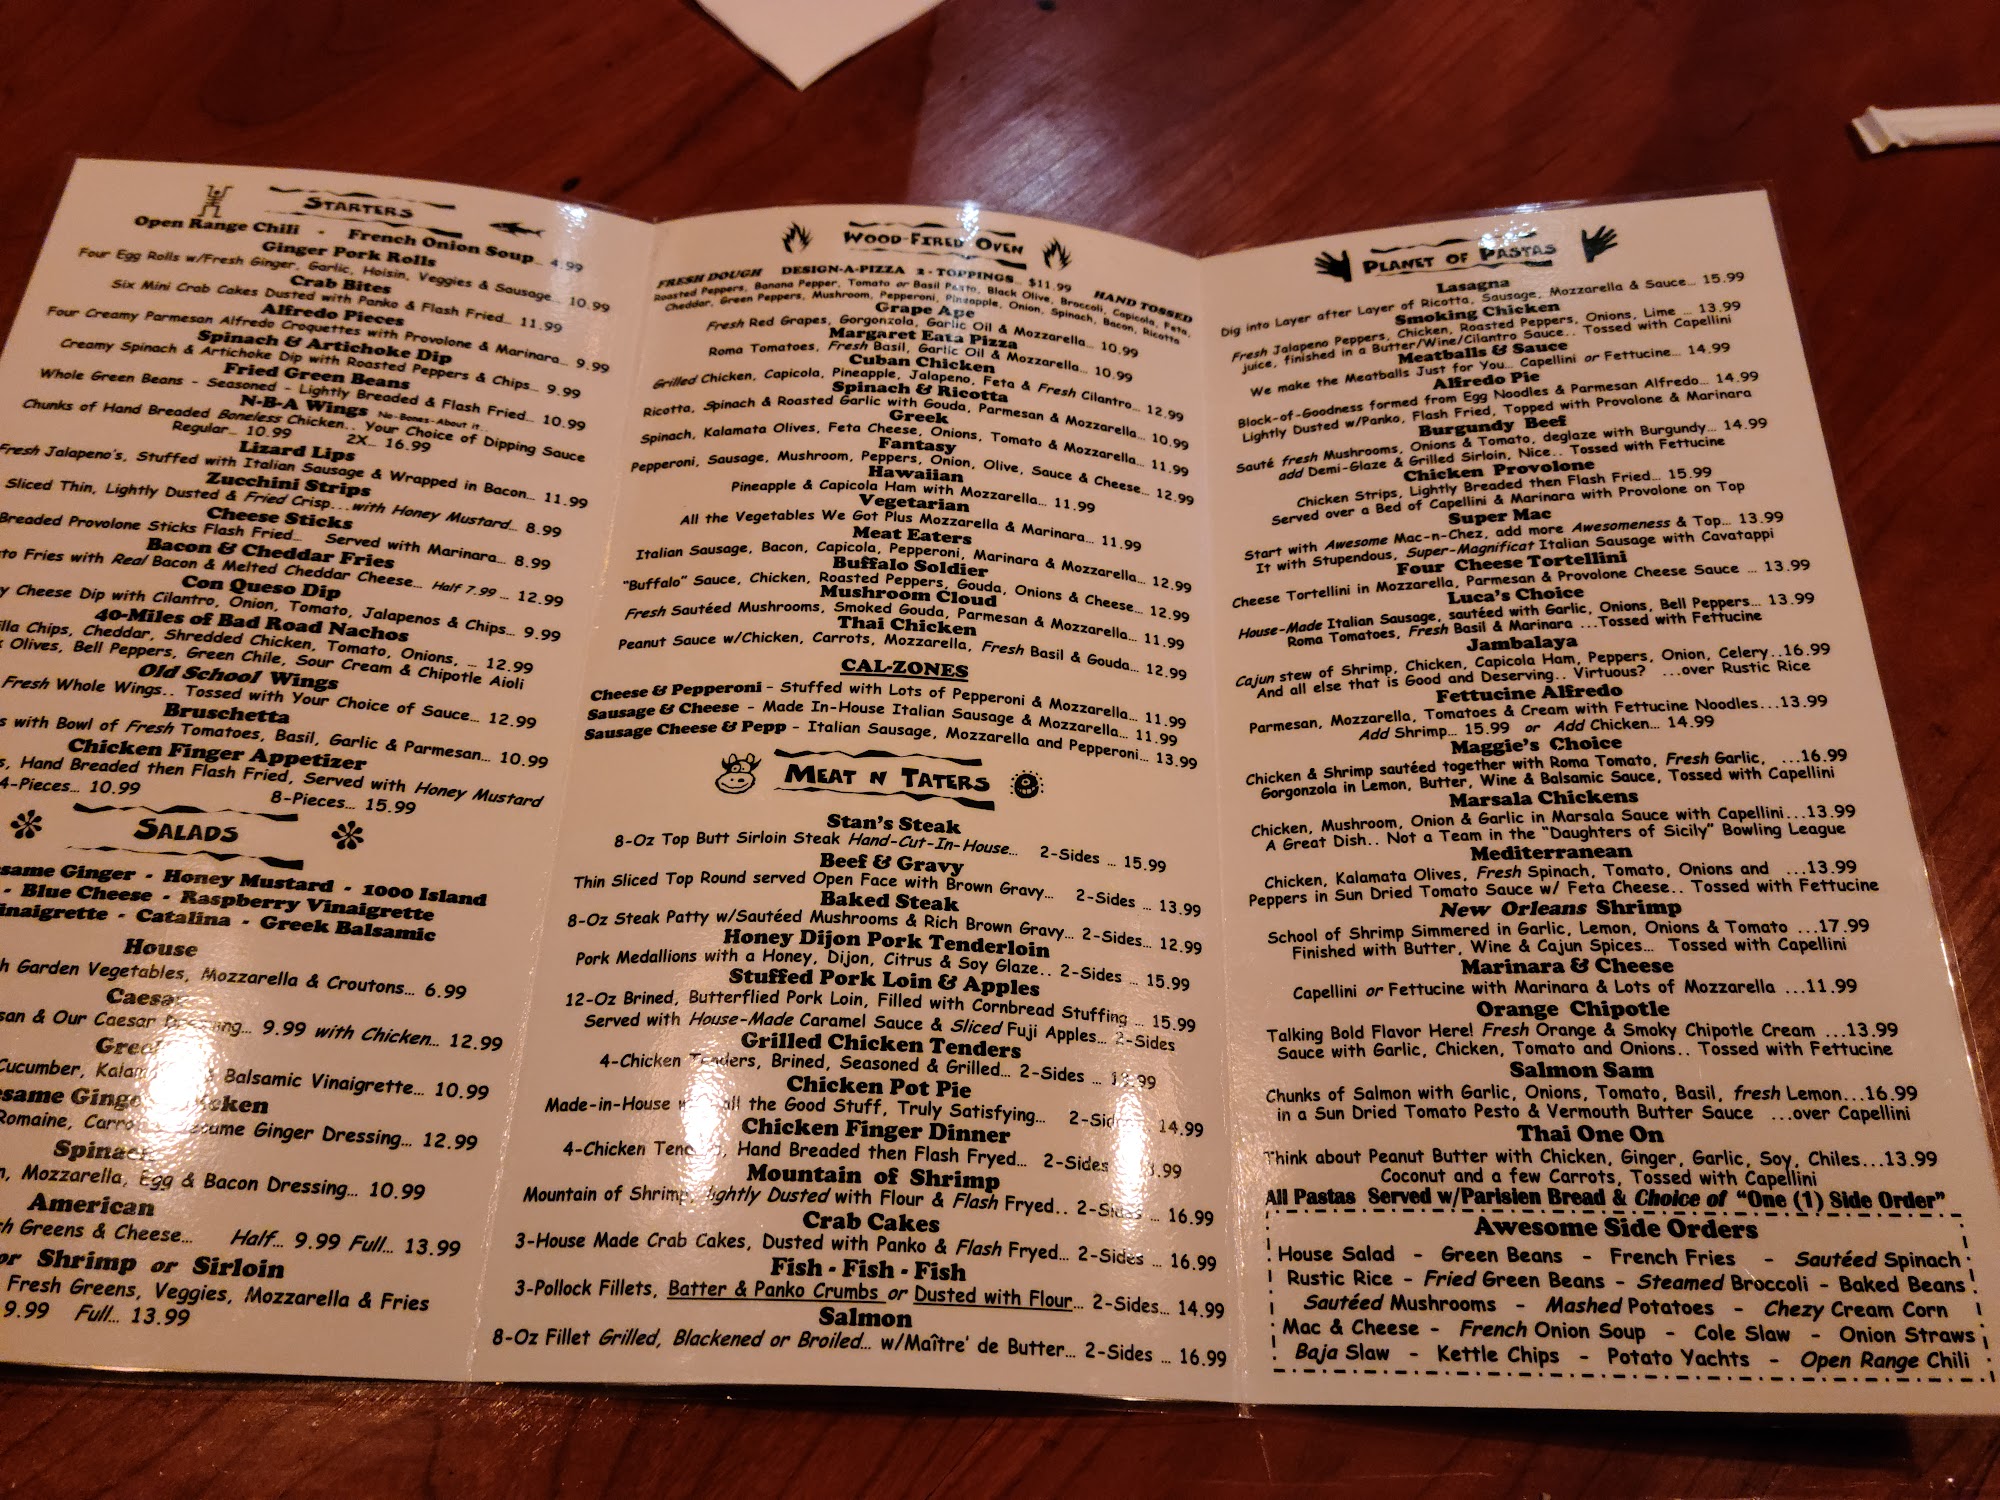 STARTERS
Open Range Chili - French Onion Soup... 4.99
Ginger Pork Rolls
Four Egg Rolls w/Fresh Ginger, Garlic, Hoisin, Veggies & Sausage... 10.99
Crab Bites
Six Mini Crab Cakes Dusted with Panko & Flash Fried... 11.99
Alfredo Pieces
Four Creamy Parmesan Alfredo Croquettes with Provolone & Marinara... 9.99
Spinach & Artichoke Dip
Creamy Spinach & Artichoke Dip with Roasted Peppers & Chips... 9.99
Fried Green Beans
Whole Green Beans - Seasoned - Lightly Breaded & Flash Fried... 10.99
N-B-A Wings No-Bones-About it..
Chunks of Hand Breaded Boneless Chicken.. Your Choice of Dipping Sauce
Regular... 10.99 2X... 16.99
Lizard Lips
Fresh Jalapeno's, Stuffed with Italian Sausage & Wrapped in Bacon... 11.99
Zucchini Strips
Sliced Thin, Lightly Dusted & Fried Crisp...with Honey Mustard... 8.99
Cheese Sticks
Breaded Provolone Sticks Flash Fried... Served with Marinara... 8.99
Bacon & Cheddar Fries
Fries with Real Bacon & Melted Cheddar Cheese... Half 7.99 ... 12.99
Con Queso Dip
Cheese Dip with Cilantro, Onion, Tomato, Jalapenos & Chips... 9.99
40-Miles of Bad Road Nachos
Chips, Cheddar, Shredded Chicken, Tomato, Onions, ... 12.99
Olives, Bell Peppers, Green Chile, Sour Cream & Chipotle Aioli
Old School Wings
Fresh Whole Wings.. Tossed with Your Choice of Sauce... 12.99
Bruschetta
with Bowl of Fresh Tomatoes, Basil, Garlic & Parmesan... 10.99
Chicken Finger Appetizer
Hand Breaded then Flash Fried, Served with Honey Mustard
4-Pieces... 10.99 8-Pieces... 15.99
SALADS
Ginger - Honey Mustard - 1000 Island
- Blue Cheese - Raspberry Vinaigrette
- Catalina - Greek Balsamic
House
Garden Vegetables, Mozzarella & Croutons... 6.99
Caesar
& Our Caesar Dressing... 9.99 with Chicken... 12.99
Greek
Cucumber, & Balsamic Vinaigrette... 10.99
Ginger Chicken
Romaine, Ginger Dressing... 12.99
Spinach
Mozzarella, Egg & Bacon Dressing... 10.99
American
Greens & Cheese... Half... 9.99 Full... 13.99
or Shrimp or Sirloin
Fresh Greens, Veggies, Mozzarella & Fries
9.99 Full... 13.99
WOOD-FIRED OVEN
FRESH DOUGH DESIGN-A-PIZZA 2-TOPPINGS... $11.99 HAND TOSSED
Roasted Peppers, Banana Pepper, Tomato or Basil Pesto, Black Olive, Broccoli, Capicola, Feta,
Cheddar, Green Peppers, Mushroom, Pepperoni, Pineapple, Onion, Spinach, Bacon, Ricotta
Grape Ape
Fresh Red Grapes, Gorgonzola, Garlic Oil & Mozzarella... 10.99
Margaret Eata Pizza
Roma Tomatoes, Fresh Basil, Garlic Oil & Mozzarella... 10.99
Cuban Chicken
Grilled Chicken, Capicola, Pineapple, Jalapeno, Feta & Fresh Cilantro... 12.99
Spinach & Ricotta
Ricotta, Spinach & Roasted Garlic with Gouda, Parmesan & Mozzarella... 10.99
Greek
Spinach, Kalamata Olives, Feta Cheese, Onions, Tomato & Mozzarella... 11.99
Fantasy
Pepperoni, Sausage, Mushroom, Peppers, Onion, Olive, Sauce & Cheese... 12.99
Hawaiian
Pineapple & Capicola Ham with Mozzarella... 11.99
Vegetarian
All the Vegetables We Got Plus Mozzarella & Marinara... 11.99
Meat Eaters
Italian Sausage, Bacon, Capicola, Pepperoni, Marinara & Mozzarella... 12.99
Buffalo Soldier
"Buffalo" Sauce, Chicken, Roasted Peppers, Gouda, Onions & Cheese... 12.99
Mushroom Cloud
Fresh Sautéed Mushrooms, Smoked Gouda, Parmesan & Mozzarella... 11.99
Thai Chicken
Peanut Sauce w/Chicken, Carrots, Mozzarella, Fresh Basil & Gouda... 12.99
CAL-ZONES
Cheese & Pepperoni - Stuffed with Lots of Pepperoni & Mozzarella... 11.99
Sausage & Cheese - Made In-House Italian Sausage & Mozzarella... 11.99
Sausage Cheese & Pepp - Italian Sausage, Mozzarella and Pepperoni... 13.99
MEAT N TATERS
Stan's Steak
8-Oz Top Butt Sirloin Steak Hand-Cut-In-House... 2-Sides ... 15.99
Beef & Gravy
Thin Sliced Top Round served Open Face with Brown Gravy... 2-Sides ... 13.99
Baked Steak
8-Oz Steak Patty w/Sautéed Mushrooms & Rich Brown Gravy... 2-Sides... 12.99
Honey Dijon Pork Tenderloin
Pork Medallions with a Honey, Dijon, Citrus & Soy Glaze.. 2-Sides ... 15.99
Stuffed Pork Loin & Apples
12-Oz Brined, Butterflied Pork Loin, Filled with Cornbread Stuffing ... 15.99
Served with House-Made Caramel Sauce & Sliced Fuji Apples... 2-Sides
Grilled Chicken Tenders
4-Chicken Tenders, Brined, Seasoned & Grilled... 2-Sides ...
Chicken Pot Pie
Made-in-House all the Good Stuff, Truly Satisfying... 2-Sides 14.99
Chicken Finger Dinner
4-Chicken Tenders, Hand Breaded then Flash Fryed... 2-Sides
Mountain of Shrimp
Mountain of Shrimp, lightly Dusted with Flour & Flash Fryed.. 2-Sides ... 16.99
Crab Cakes
3-House Made Crab Cakes, Dusted with Panko & Flash Fryed... 2-Sides ... 16.99
Fish - Fish - Fish
3-Pollock Fillets, Batter & Panko Crumbs or Dusted with Flour... 2-Sides... 14.99
Salmon
8-Oz Fillet Grilled, Blackened or Broiled... w/Maître' de Butter... 2-Sides ... 16.99
PLANET OF PASTAS
Lasagna
Dig into Layer after Layer of Ricotta, Sausage, Mozzarella & Sauce... 15.99
Smoking Chicken
Fresh Jalapeno Peppers, Chicken, Roasted Peppers, Onions, Lime ... 13.99
juice, finished in a Butter/Wine/Cilantro Sauce.. Tossed with Capellini
Meatballs & Sauce
We make the Meatballs Just for You... Capellini or Fettucine... 14.99
Alfredo Pie
Block-of-Goodness formed from Egg Noodles & Parmesan Alfredo... 14.99
Lightly Dusted w/Panko, Flash Fried, Topped with Provolone & Marinara
Burgundy Beef
Sauté fresh Mushrooms, Onions & Tomato, deglaze with Burgundy... 14.99
add Demi-Glaze & Grilled Sirloin, Nice.. Tossed with Fettucine
Chicken Provolone
Chicken Strips, Lightly Breaded then Flash Fried... 15.99
Served over a Bed of Capellini & Marinara with Provolone on Top
Super Mac
Start with Awesome Mac-n-Chez, add more Awesomeness & Top... 13.99
It with Stupendous, Super-Magnificat Italian Sausage with Cavatappi
Four Cheese Tortellini
Cheese Tortellini in Mozzarella, Parmesan & Provolone Cheese Sauce ... 13.99
Luca's Choice
House-Made Italian Sausage, sautéed with Garlic, Onions, Bell Peppers... 13.99
Roma Tomatoes, Fresh Basil & Marinara ...Tossed with Fettucine
Jambalaya
Cajun stew of Shrimp, Chicken, Capicola Ham, Peppers, Onion, Celery..16.99
And all else that is Good and Deserving.. Virtuous? ...over Rustic Rice
Fettucine Alfredo
Parmesan, Mozzarella, Tomatoes & Cream with Fettucine Noodles...13.99
Add Shrimp... 15.99 or Add Chicken... 14.99
Maggie's Choice
Chicken & Shrimp sautéed together with Roma Tomato, Fresh Garlic, ...16.99
Gorgonzola in Lemon, Butter, Wine & Balsamic Sauce, Tossed with Capellini
Marsala Chickens
Chicken, Mushroom, Onion & Garlic in Marsala Sauce with Capellini...13.99
A Great Dish.. Not a Team in the "Daughters of Sicily" Bowling League
Mediterranean
Chicken, Kalamata Olives, Fresh Spinach, Tomato, Onions and ...13.99
Peppers in Sun Dried Tomato Sauce w/ Feta Cheese.. Tossed with Fettucine
New Orleans Shrimp
School of Shrimp Simmered in Garlic, Lemon, Onions & Tomato ...17.99
Finished with Butter, Wine & Cajun Spices... Tossed with Capellini
Marinara & Cheese
Capellini or Fettucine with Marinara & Lots of Mozzarella ...11.99
Orange Chipotle
Talking Bold Flavor Here! Fresh Orange & Smoky Chipotle Cream ...13.99
Sauce with Garlic, Chicken, Tomato and Onions.. Tossed with Fettucine
Salmon Sam
Chunks of Salmon with Garlic, Onions, Tomato, Basil, fresh Lemon...16.99
in a Sun Dried Tomato Pesto & Vermouth Butter Sauce ...over Capellini
Thai One On
Think about Peanut Butter with Chicken, Ginger, Garlic, Soy, Chiles...13.99
Coconut and a few Carrots, Tossed with Capellini
All Pastas Served w/Parisien Bread & Choice of "One (1) Side Order"
Awesome Side Orders
House Salad - Green Beans - French Fries - Sautéed Spinach
Rustic Rice - Fried Green Beans - Steamed Broccoli - Baked Beans
Sautéed Mushrooms - Mashed Potatoes - Chezy Cream Corn
Mac & Cheese - French Onion Soup - Cole Slaw - Onion Straws
Baja Slaw - Kettle Chips - Potato Yachts - Open Range Chili